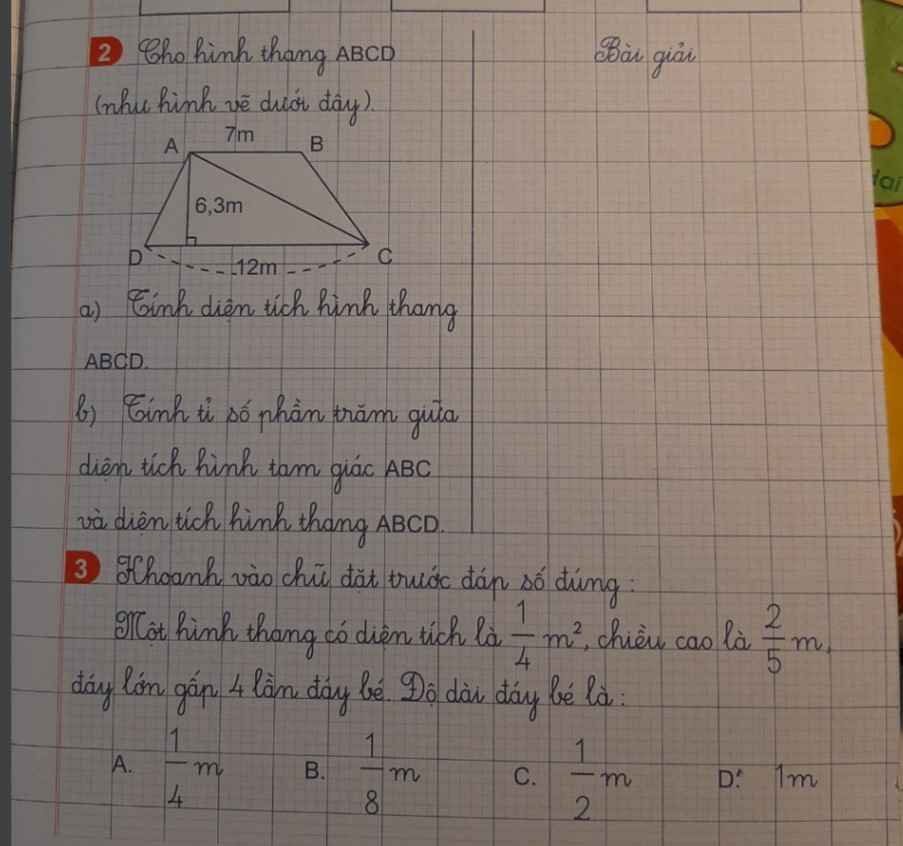 2 Cho hình thang ABCD
(như hình vẽ dưới đây).
7m
A B
6,3m
D C
12m
a) Tính diện tích hình thang
ABCD.
b) Tính tỉ số phần trăm giữa
diện tích hình tam giác ABC
và diện tích hình thang ABCD.
Bài giải
3 Khoanh vào chữ đặt trước đáp số đúng:
Một hình thang có diện tích là 1/4 m², chiều cao là 2/5 m,
đáy lớn gấp 4 lần đáy bé. Độ dài đáy bé là:
A. 1/4 m B. 1/8 m C. 1/2 m D. 1m